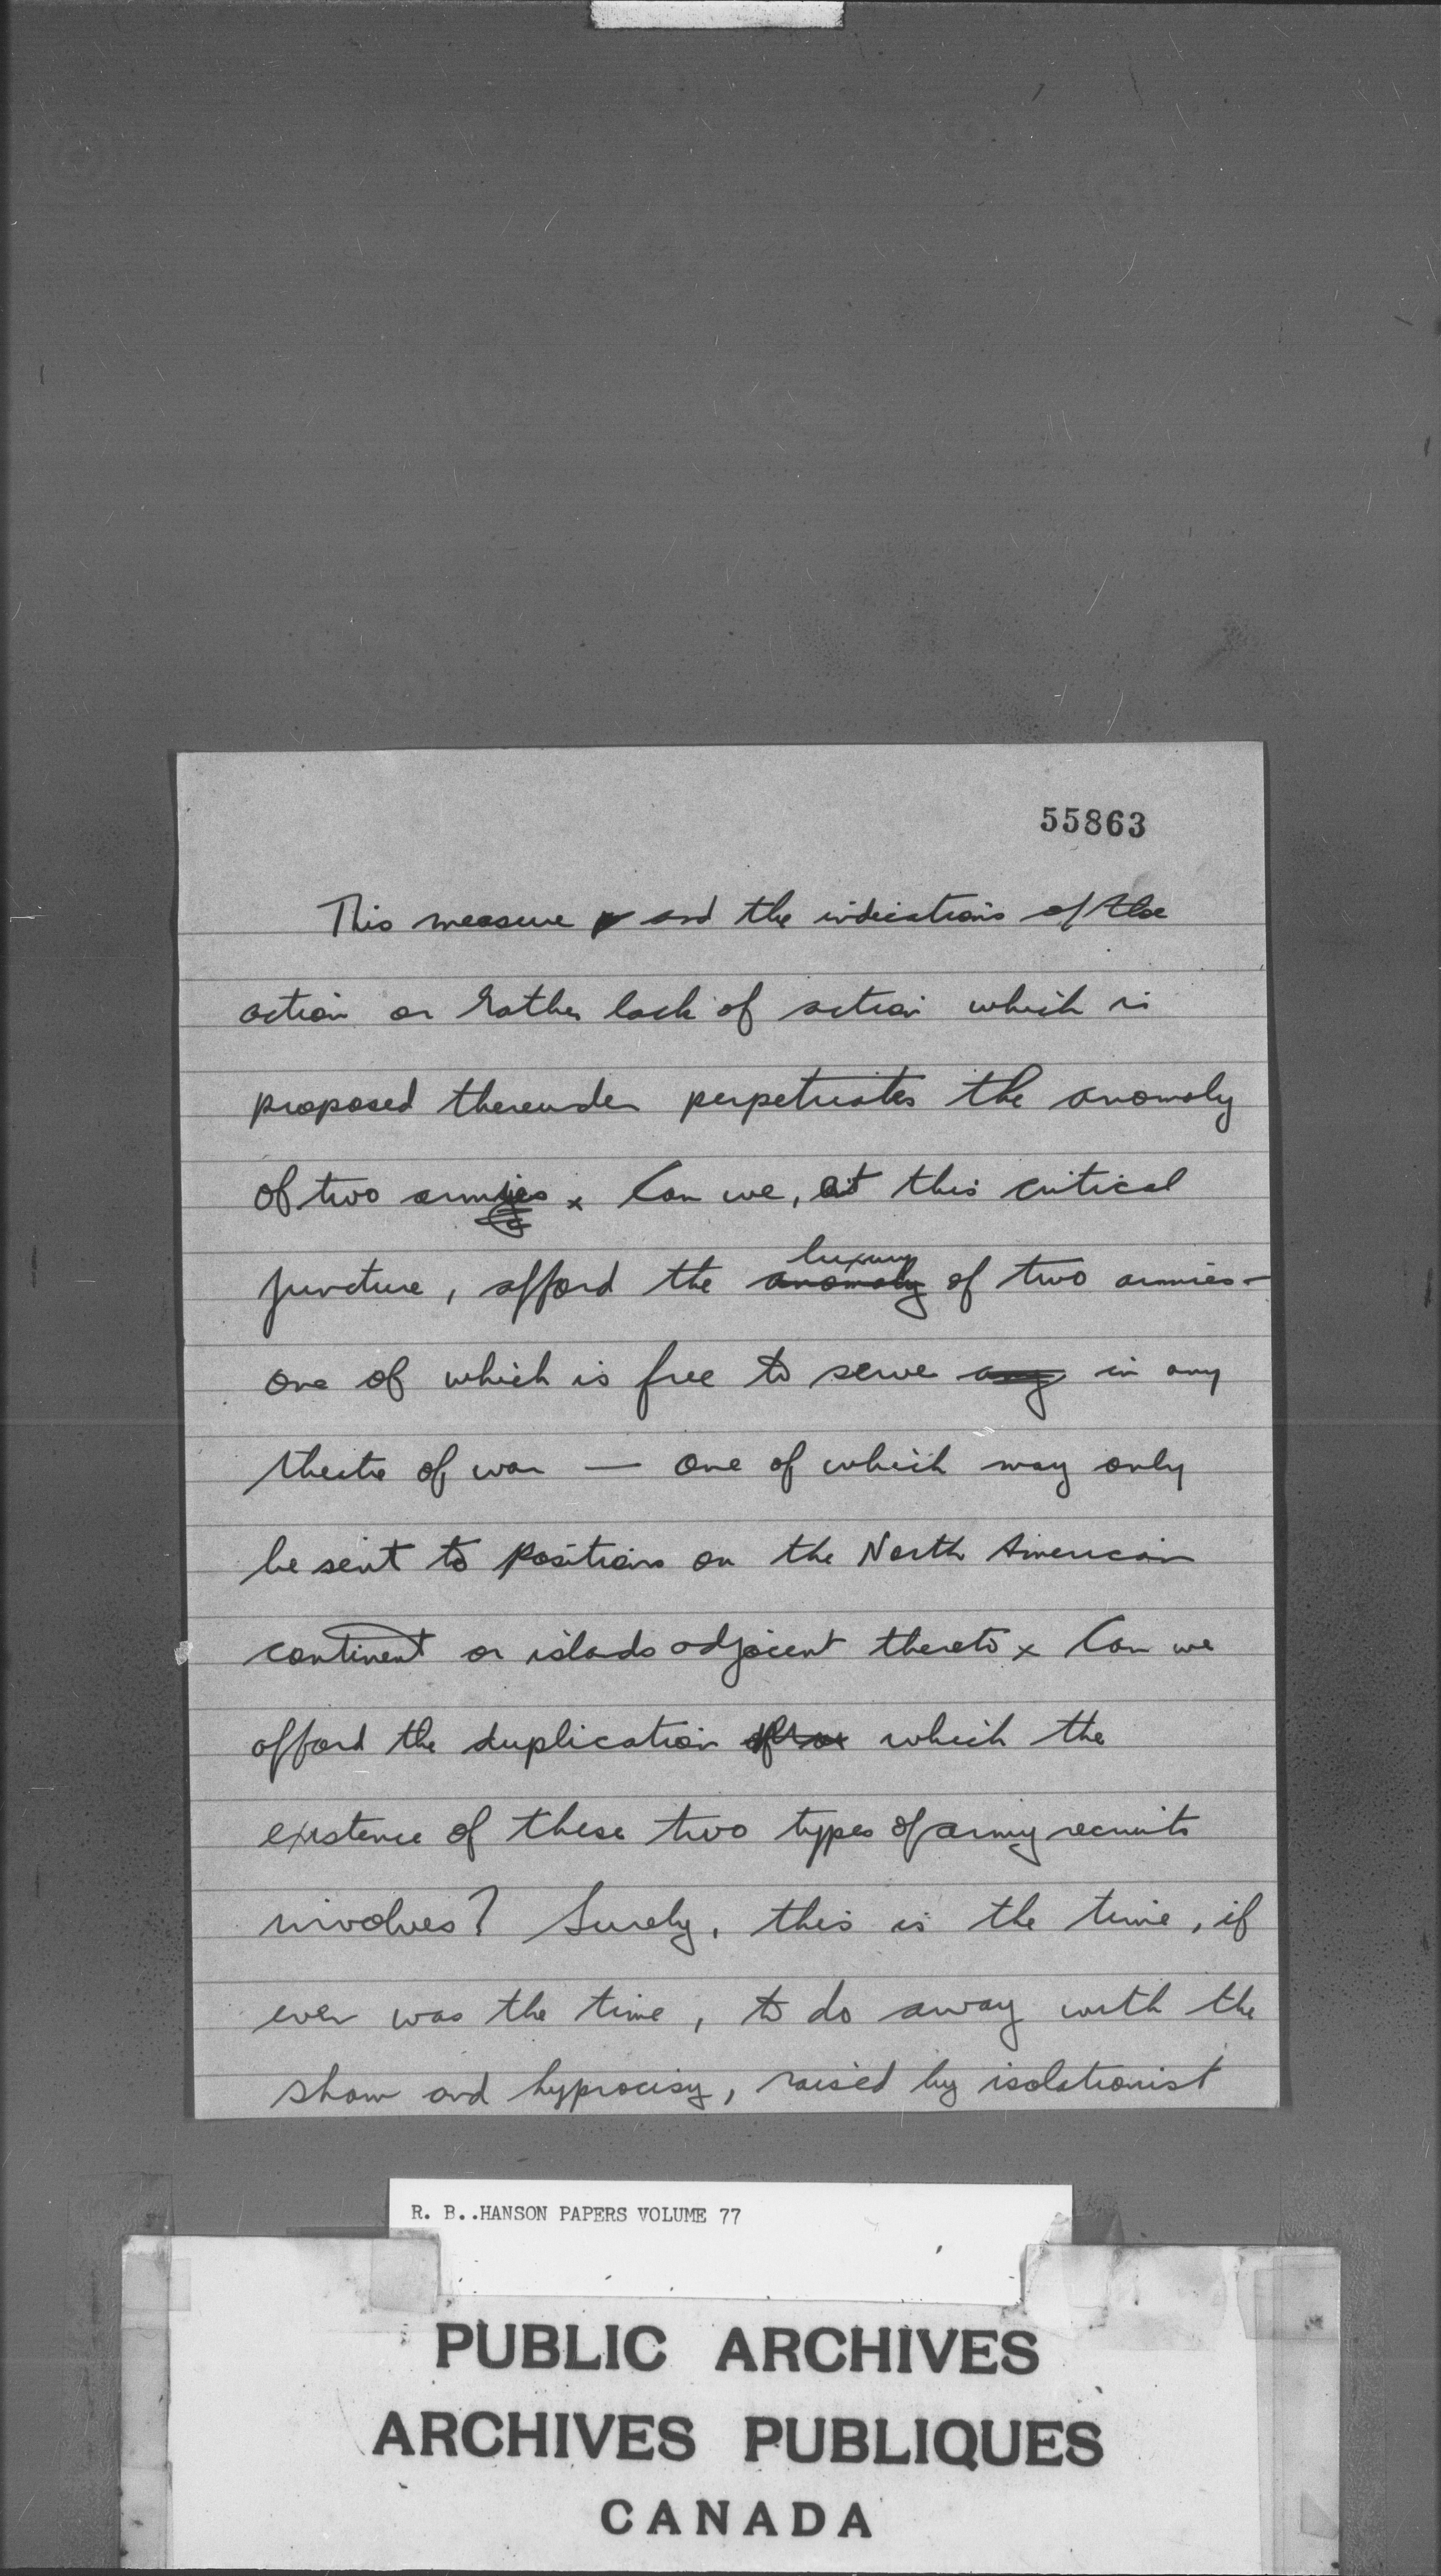 55863
This measure and the indications of the
action or rather lack of action which is
proposed thereunder perpetuates the anomaly
of two armies x Can we, at this critical
luxury
juncture, afford the anomaly of two armies -
one of which is free to serve any in any
theatre of war — one of which may only
be sent to positions on the North American
continent or islands adjacent thereto x Can we
afford the duplication which the
existence of these two types of army recruits
involves? Surely, this is the time, if
ever was the time, to do away with the
sham and hyprocisy, raised by isolationist
R. B..HANSON PAPERS VOLUME 77
PUBLIC ARCHIVES
ARCHIVES PUBLIQUES
CANADA